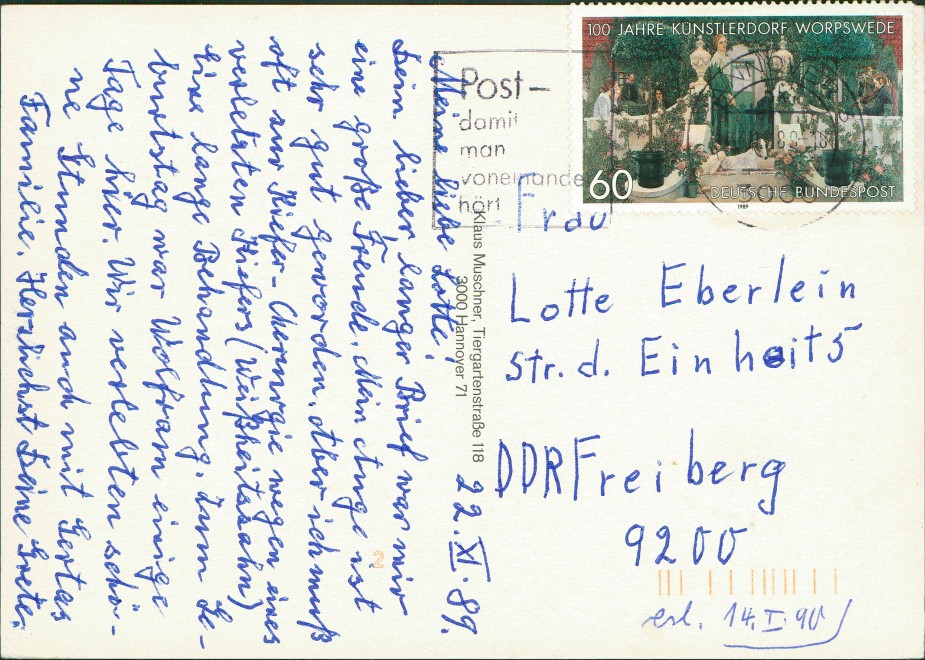 22.XI.89.
Meine liebe Lotte!
Dein lieber, langer Brief war mir
eine große Freude. Mein Auge ist
sehr gut geworden. Aber ich muß
oft zur Kiefer-Chirurgie wegen eines
verletzten Kiefers (Weißheitszahn)
Eine lange Behandlung. Zum Ge-
burtstag war Wolfram einige
Tage hier. Wir verlebten schö-
ne Stunden auch mit Gertas
Familie. Herzlichst Deine Grete.
Klaus Muschner, Tiergartenstraße 118
3000 Hannover 71
Post –
damit
man
voneinande
hört
100 JAHRE KÜNSTLERDORF WORPSWEDE
60
DEUTSCHE BUNDESPOST
1989
Frau
Lotte Eberlein
Str. d. Einheit 5
DDR Freiberg
9200
2
erl. 14.I.90